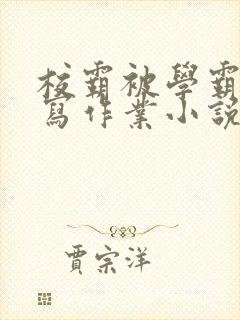 校霸被學霸
寫作業小說
賈宗洋